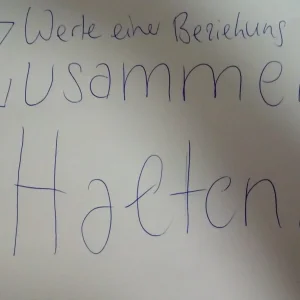 7 Werte einer Beziehung
Zusammen
Halten